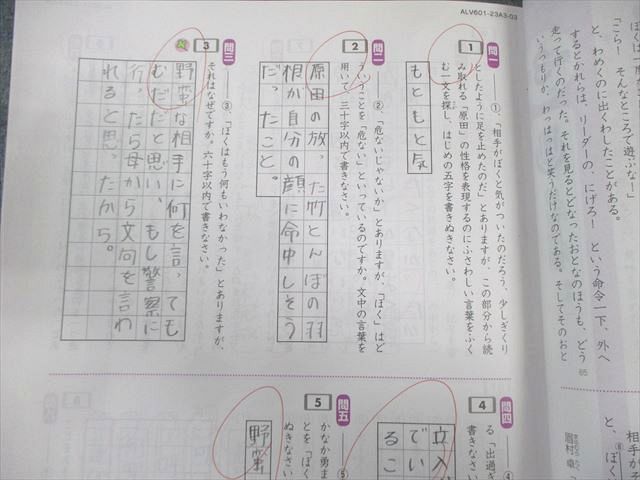 ALV601-23A3-03
「こら！　そんなところで遊ぶな！」
と、わめくのに出くわしたことがある。
するとかれらは、リーダーの、にげろ！　という命令一下、外へ
走って行くのだった。それを見るとどなったおとなのほうも、どう
いうつもりか、わっはっはと笑うだけなのである。そしてそのおと
65
眉村 卓
問一
1
①「相手がぼくと気がついたのだろう、少しぎくり
としたように足を止めたのだ」とありますが、この部分から読
み取れる「原田」の性格を表現するのにふさわしい言葉をふく
む一文を探し、はじめの五字を書きぬきなさい。
もともと気
問二
2
②「危ないじゃないか」とありますが、「ぼく」はど
ういうことを「危ない」といっているのですか。文中の言葉を
用いて、三十字以内で書きなさい。
原田の放った竹とんぼの羽
根が自分の顔に命中しそう
だったこと。
問三
3
③「ぼくはもう何もいわなかった」とありますが、
それはなぜですか。六十字以内で書きなさい。
野蛮な相手に何を言っても
むだだと思い、もし警察に
行ったら母から文句を言わ
れると思ったから。
問四
4
④
る「出過ぎ
書きなさい
立入
でい
るこ
問五
5
⑤
かなか勇ま
とを「ぼく
ぬきなさい
野蛮